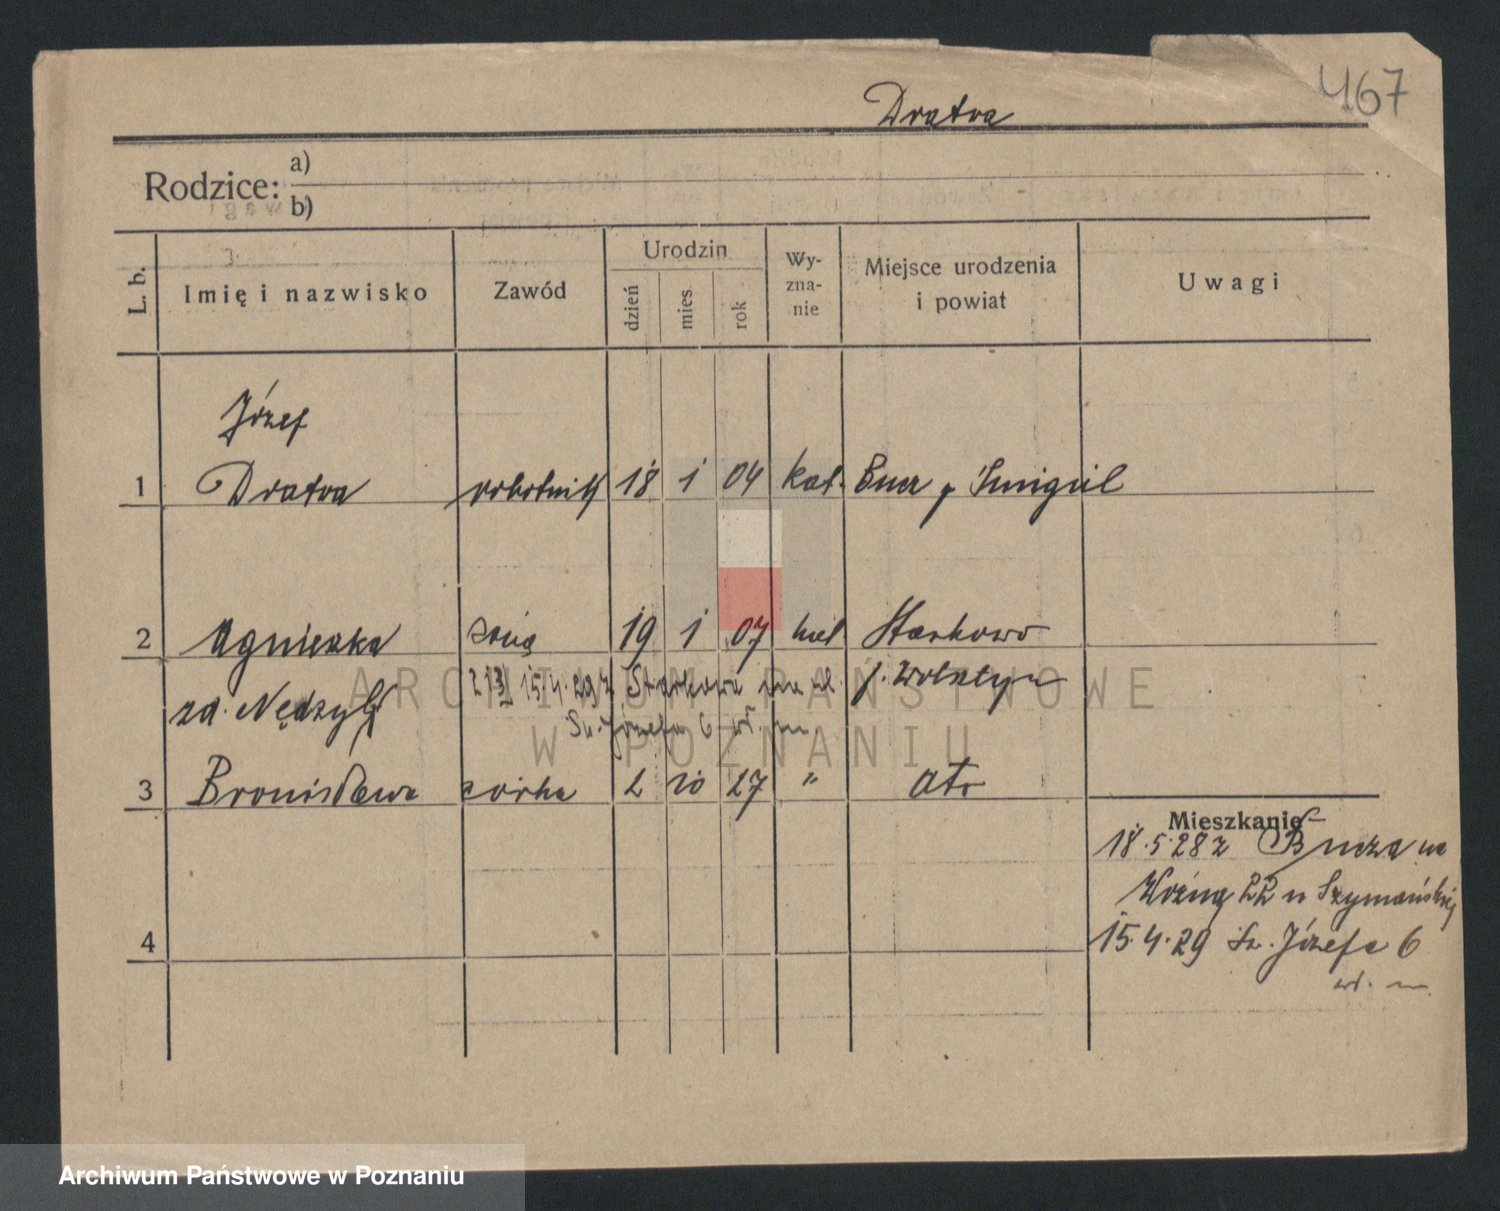 467
Dratva
Rodzice:
a)
b)
L. b.
Imię i nazwisko
Zawód
Urodzin
dzień
mies
rok
Wy-
zna-
nie
Miejsce urodzenia
i powiat
Uwagi
Józef
1 Dratva robotnik 18 1 04 kat. Buer p Smigiel
2 Agnieszka żona 19 1 07 kat. Starkowo
15.4.29 z Starkowa na ul. p. Wolsztyn
zd. Nędzyk
Św. Józefa 6
3 Bronisława córka 2 10 27 " Oto
Mieszkanie
18.5.28 z Bucza na
Woźną 22 u Szymańskiej
4
15.4.29 Św. Józefa 6
ARCHIWUM PAŃSTWOWE
W POZNANIU
Archiwum Państwowe w Poznaniu